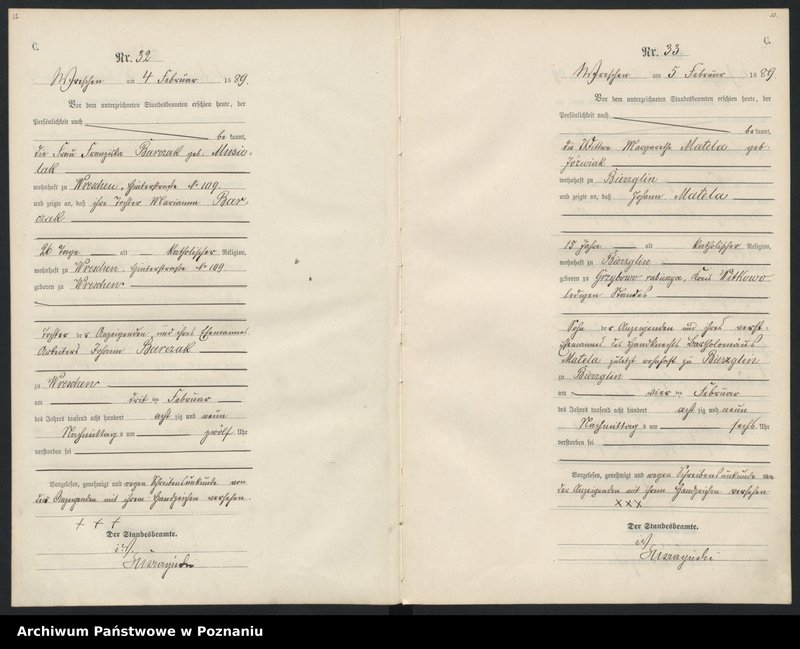 C.
Nr. 32
Wreschen am 4 Februar 1889
Vor dem unterzeichneten Standesbeamten erschien heute, der
Persönlichkeit nach
be kannt,
die Frau Franziska Barczak geb: Musio-
lak
wohnhaft zu Wreschen, Hinterstraße No 109.
und zeigte an, daß ihre Tochter Marianna Bar
czak
26 Tage alt katholischer Religion,
wohnhaft zu Wreschen, Hinterstraße No 109.
geboren zu Wreschen
Tochter der Anzeigenden und ihres Ehemannes
Arbeiters Johann Barczak
zu Wreschen
am drei ten Februar
des Jahres tausend acht hundert acht zig und neun
Nachmittags um zwölf Uhr
verstorben sei
Vorgelesen, genehmigt und wegen Schreibensunkunde von
der Anzeigenden mit ihrem Handzeichen versehen.
+ + +
Der Standesbeamte.
33.
C.
Nr. 33
Wreschen am 5 Februar 1889
Vor dem unterzeichneten Standesbeamten erschien heute, der
Persönlichkeit nach
be kannt,
die Wittwe Margaretha Matela geb.
Jóźwiak
wohnhaft zu Bierzglin
und zeigte an, daß Johann Matela
15 Jahre alt katholischer Religion,
wohnhaft zu Bierzglin
geboren zu Grzybowo rabieżyce, Kreis Witkowo
ledigen Standes
Sohn der Anzeigenden und ihres verst.
Ehemannes des Bartholomäus
Matela zuletzt wohnhaft zu Bierzglin
zu Bierzglin
am vier ten Februar
des Jahres tausend acht hundert acht zig und neun
Nachmittags um sechs Uhr
verstorben sei
Vorgelesen, genehmigt und wegen Schreibensunkunde von
der Anzeigenden mit ihrem Handzeichen versehen
x x x
Der Standesbeamte.
Archiwum Państwowe w Poznaniu